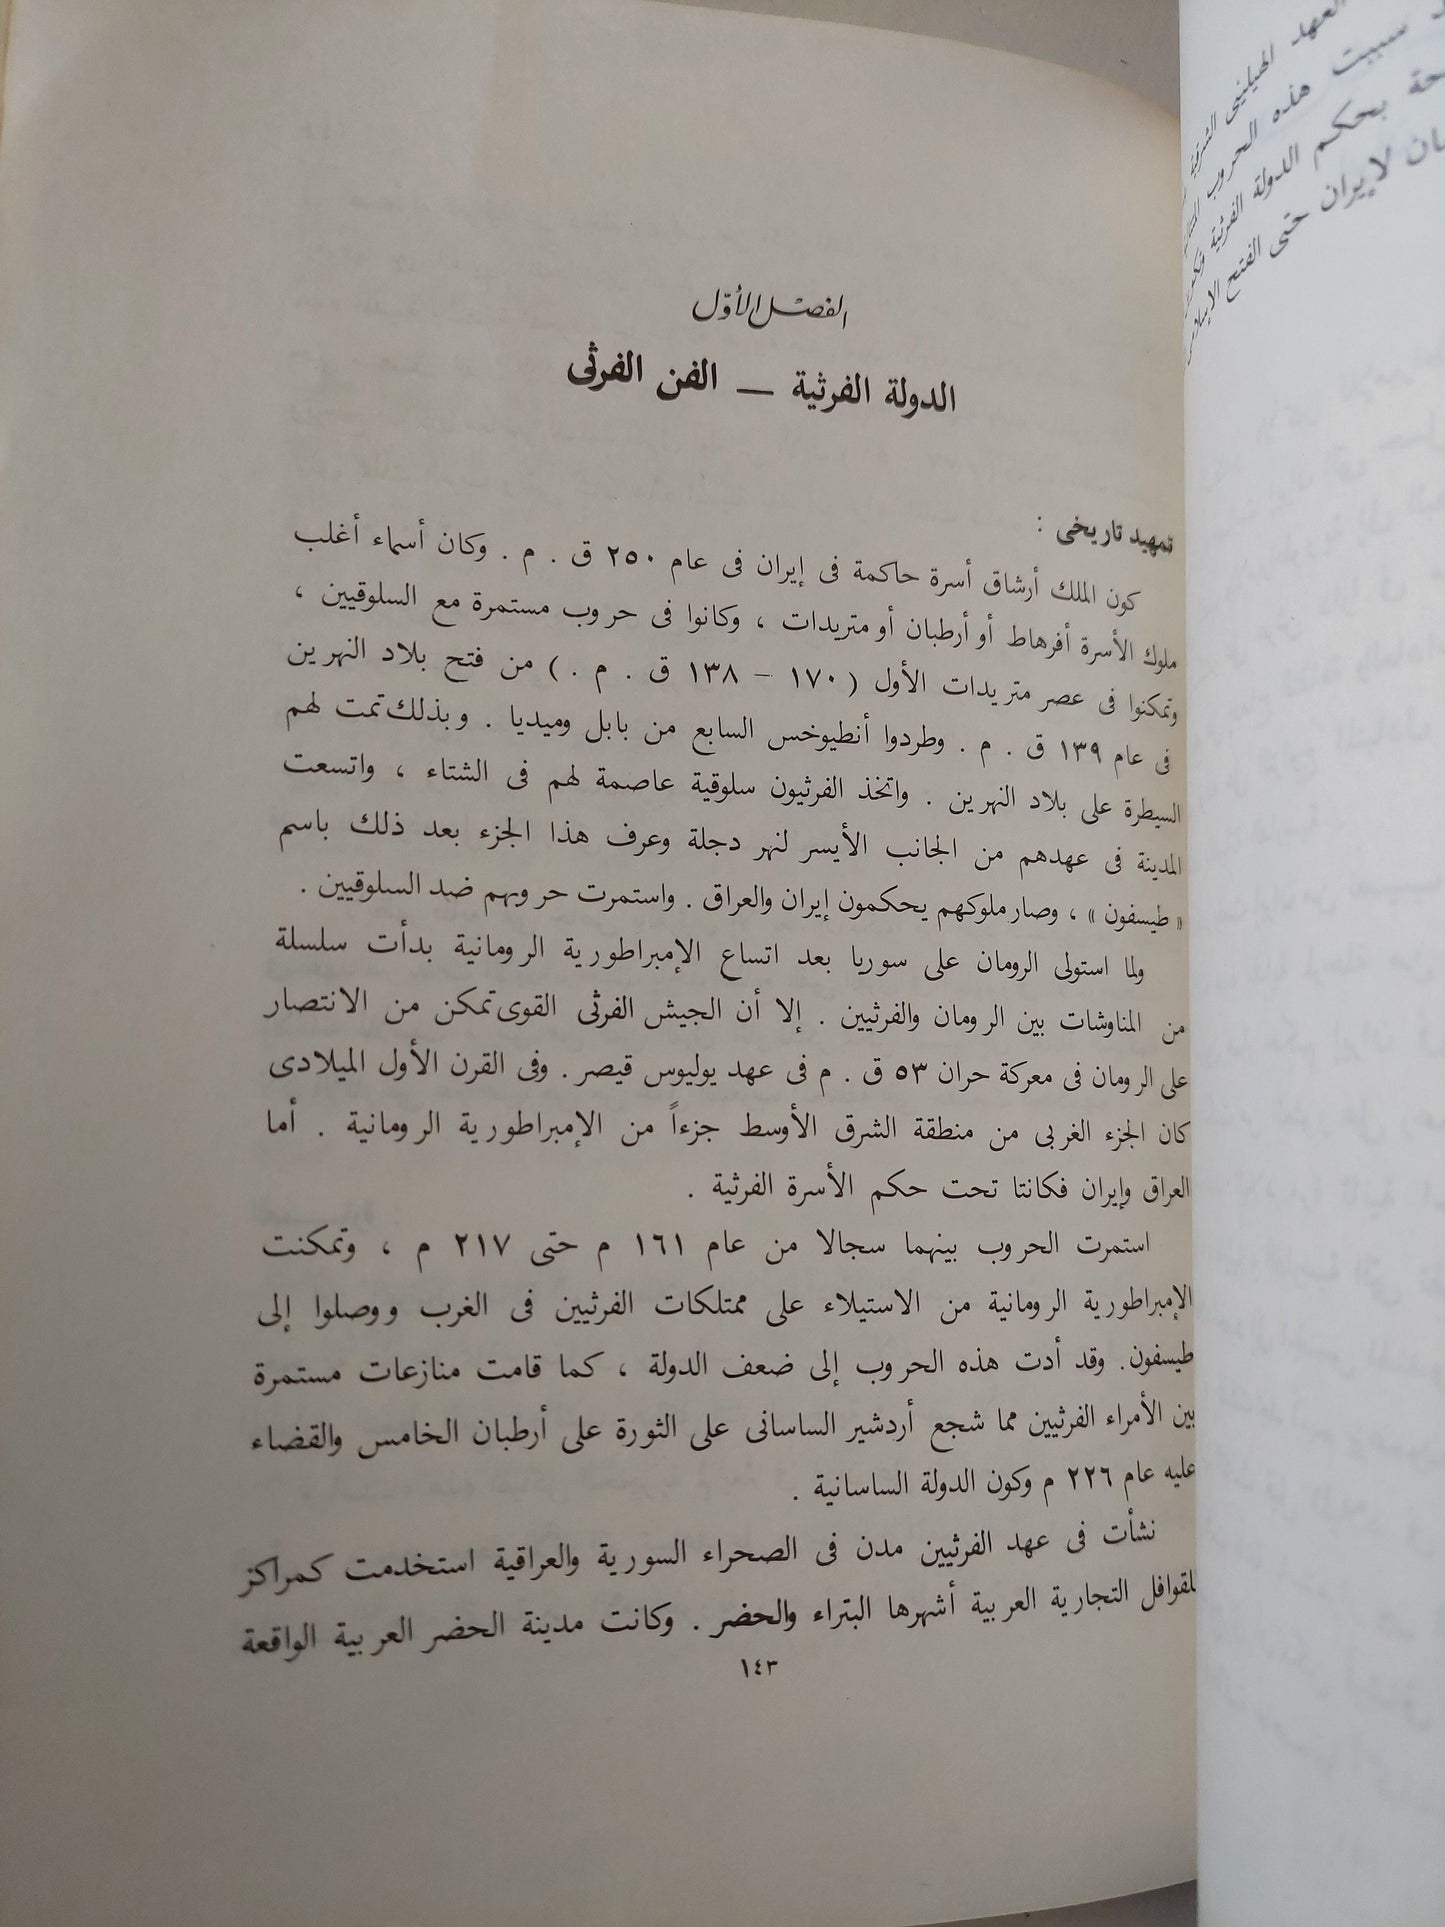 الفصل الأوّل
الدولة الفرثية — الفن الفرثى
تمهيد تاريخى :
كون الملك أرشاق أسرة حاكمة فى إيران فى عام ٢٥٠ ق . م . وكان أسماء أغلب
ملوك الأسرة أفرهاط أو أرطبان أو متريدات ، وكانوا فى حروب مستمرة مع السلوقيين ،
وتمكنوا فى عصر متريدات الأول ( ١٧٠ – ١٣٨ ق . م . ) من فتح بلاد النهرين
فى عام ١٣٩ ق . م . وطردوا أنطيوخس السابع من بابل وميديا . وبذلك تمت لهم
السيطرة على بلاد النهرين . واتخذ الفرثيون سلوقية عاصمة لهم فى الشتاء ، واتسعت
المدينة فى عهدهم من الجانب الأيسر لنهر دجلة وعرف هذا الجزء بعد ذلك باسم
« طيسفون » ، وصار ملوكهم يحكمون إيران والعراق . واستمرت حروبهم ضد السلوقيين .
ولما استولى الرومان على سوريا بعد اتساع الإمبراطورية الرومانية بدأت سلسلة
من المناوشات بين الرومان والفرثيين . إلا أن الجيش الفرثى القوى تمكن من الانتصار
على الرومان فى معركة حران ٥٣ ق . م فى عهد يوليوس قيصر . وفى القرن الأول الميلادى
كان الجزء الغربى من منطقة الشرق الأوسط جزءاً من الإمبراطورية الرومانية . أما
العراق وإيران فكانتا تحت حكم الأسرة الفرثية .
استمرت الحروب بينهما سجالا من عام ١٦١ م حتى ٢١٧ م ، وتمكنت
الإمبراطورية الرومانية من الاستيلاء على ممتلكات الفرثيين فى الغرب ووصلوا إلى
طيسفون. وقد أدت هذه الحروب إلى ضعف الدولة ، كما قامت منازعات مستمرة
بين الأمراء الفرثيين مما شجع أردشير الساسانى على الثورة على أرطبان الخامس والقضاء
عليه عام ٢٢٦ م وكون الدولة الساسانية .
نشأت فى عهد الفرثيين مدن فى الصحراء السورية والعراقية استخدمت كمراكز
للقوافل التجارية العربية أشهرها البتراء والحضر . وكانت مدينة الحضر العربية الواقعة
١٤٣
العهد الهيلينى الشرقية
سببت هذه الحروب
بحكم الدولة الفرثية
لإيران حتى الفتح